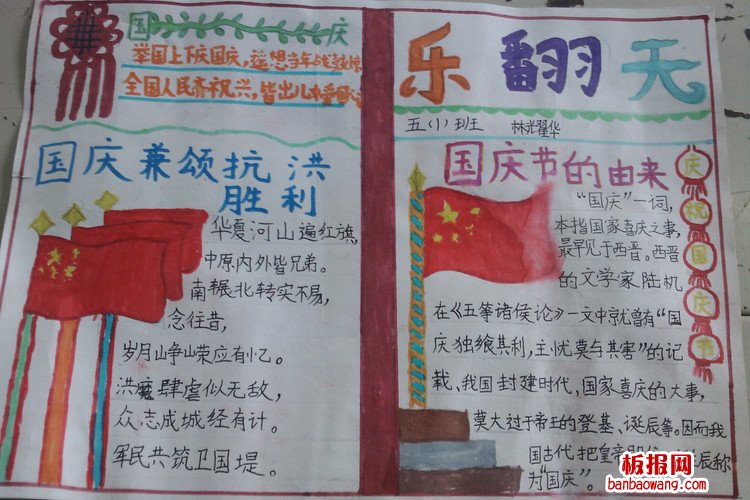 国庆
举国上下庆国庆，遥想当年战
全国人民齐祝兴，皆出儿
国庆兼颂抗洪
胜利
华夏河山遍红旗，
中原内外皆兄弟。
南辗北转实不易，
念往昔，
岁月峥嵘应有忆。
洪魔肆虐似无敌，
众志成城经有计。
军民共筑卫国堤。
乐翻天
五(1)班 林光耀华
国庆节的由来
“国庆”一词，
本指国家喜庆之事，
最早见于西晋。西晋
的文学家陆机
在《五等诸侯论》一文中就曾有“国
庆独飨其利，主忧莫与其害”的记
载、我国封建时代，国家喜庆的大事，
莫大过于帝王的登基、诞辰等。因而我
国古代把皇帝即位、辰称
为“国庆”。
庆祝国庆节
板报网
banbaowang.com